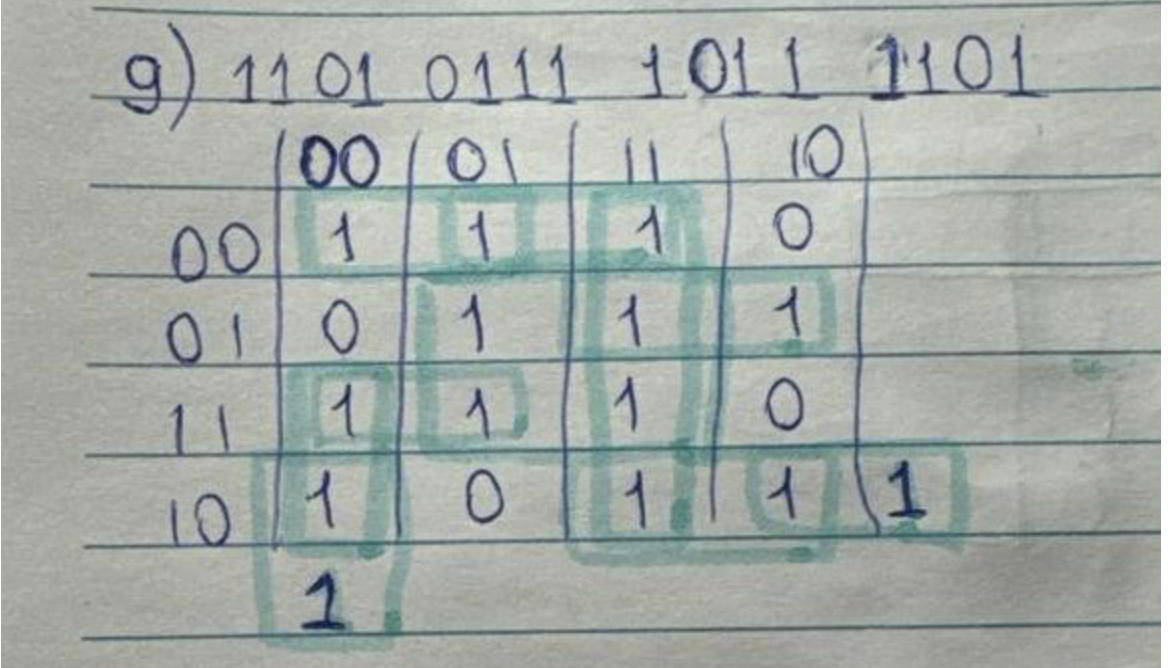 g) 1101 0111 1011 1101
00 01 11 10
00 1 1 1 0
01 0 1 1 1
11 1 1 1 0
10 1 0 1 1 1
1